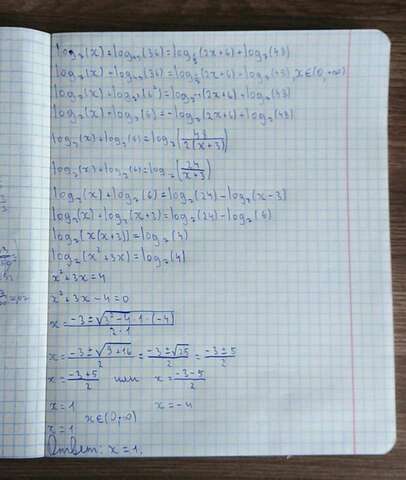 log₂(x)+log₄(36)=log_½(2x+6)+log₂(48)
log₂(x)+log₄(36)=log_½(2x+6)+log₂(48), x∈(0,+∞)
log₂(x)+log₂²(6²)=log₂⁻¹(2x+6)+log₂(48)
log₂(x)+log₂(6)=-log₂(2x+6)+log₂(48)
log₂(x)+log₂(6)=log₂(48/(2(x+3)))
log₂(x)+log₂(6)=log₂(24/(x+3))
log₂(x)+log₂(6)=log₂(24)-log₂(x-3)
log₂(x)+log₂(x+3)=log₂(24)-log₂(6)
log₂(x(x+3))=log₂(4)
log₂(x²+3x)=log₂(4)
x²+3x=4
x²+3x-4=0
x=(-3±√(3²-4·1·(-4)))/(2·1)
x=(-3±√(9+16))/2=(-3±√25)/2=(-3±5)/2
x=(-3+5)/2 или x=(-3-5)/2
x=1 x=-4
x∈(0,+∞)
x=1
Ответ: x=1;